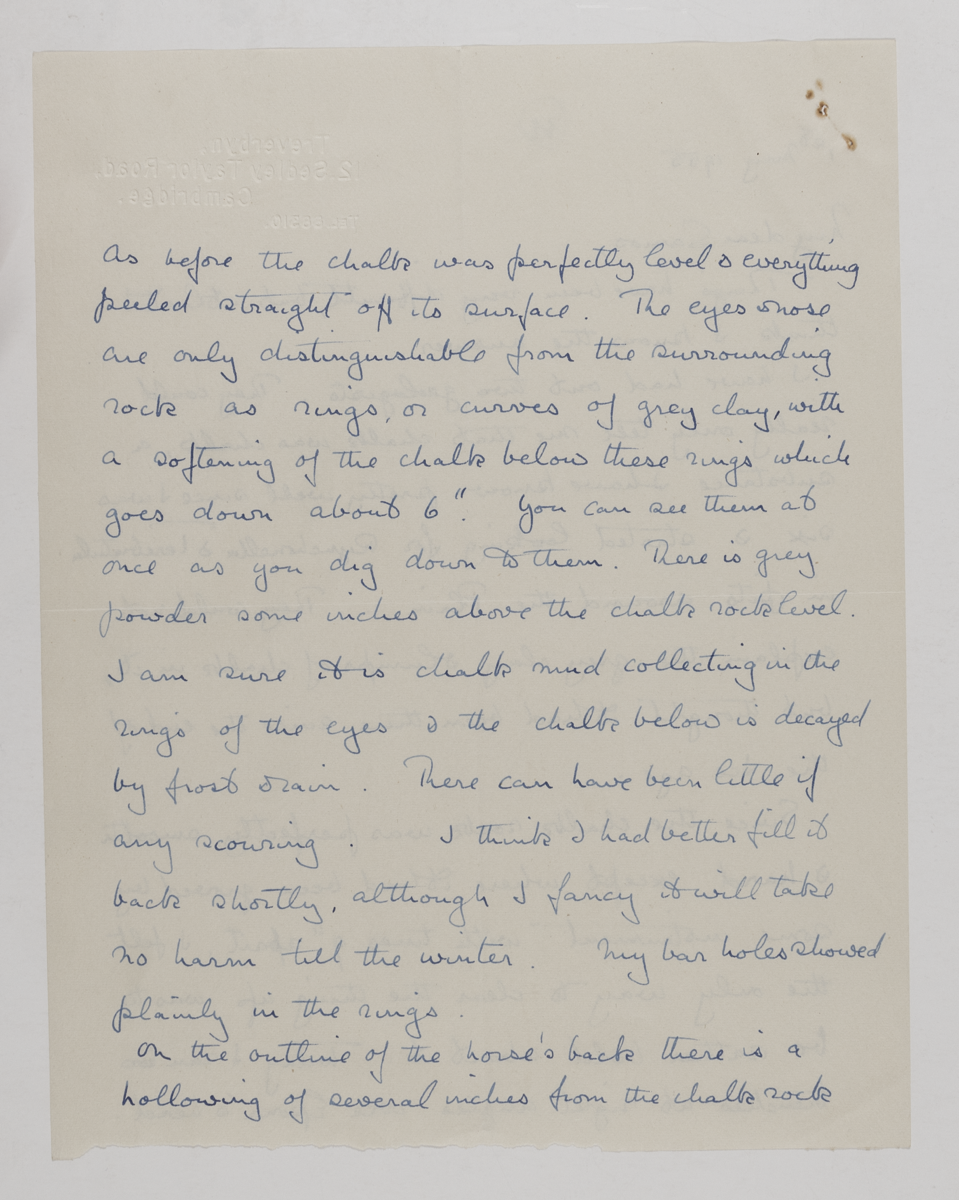 Treverbyn,
2, Sedley Taylor Road,
Cambridge.
As before the chalk was perfectly level & everything
peeled straight off its surface. The eyes & nose
are only distinguishable from the surrounding
rock as rings, or curves of grey clay, with
a softening of the chalk below these rings which
goes down about 6". You can see them at
once as you dig down to them. There is grey
powder some inches above the chalk rock level.
I am sure it is chalk mud collecting in the
rings of the eyes & the chalk below is decayed
by frost & rain. There can have been little if
any scouring. I think I had better fill it
back shortly, although I fancy it will take
no harm till the winter. My bar holes showed
plainly in the rings.
On the outline of the horse's back there is a
hollowing of several inches from the chalk rock